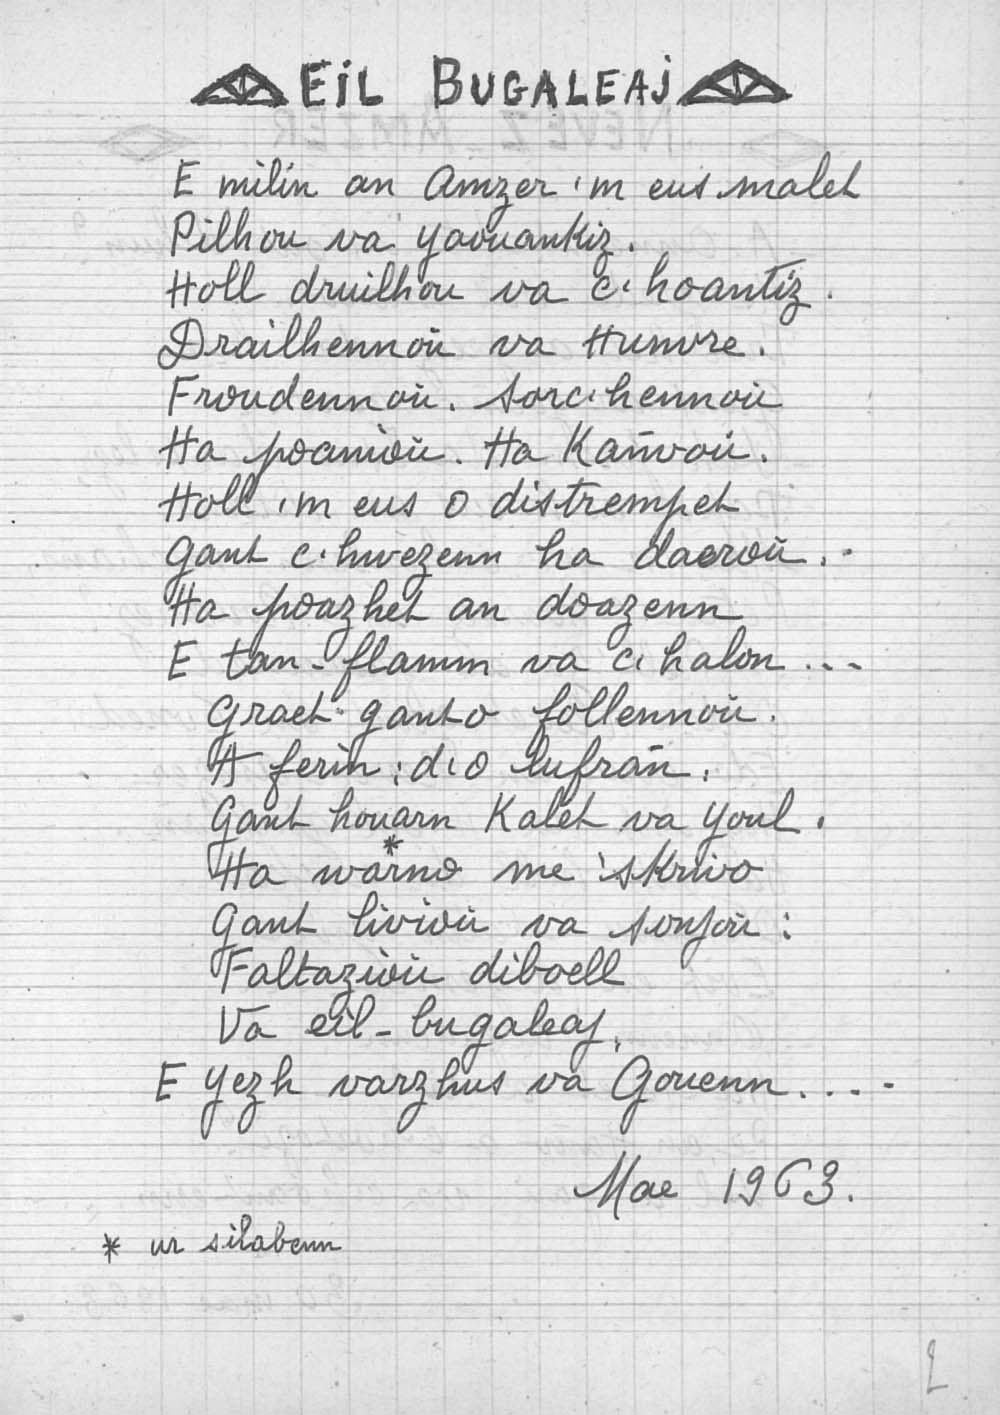 EIL BUGALEAJ
E milin an Amzer 'm eus malet
Pilhou va yaouankiz.
Holl druilhou va c'hoantiz.
Drailhennoù va Hunvre.
Froudennoù. Sorc'hennoù
Ha poanioù. Ha Kañvoù.
Holl 'm eus o distrempet
Gant c'hwezenn ha daeroù..
Ha poazhet an doazenn
E tan-flamm va c'halon...
Graet ganto follennoù.
A ferin; d'o lufrañ.
Gant houarn Kalet va Youl.
Ha warno* me 'skrivo
Gant livioù va soñjoù:
Faltazioù diboell
Va eil-bugaleaj,
E Yezh varzhus va Gouenn....
Mae 1963.
* ur silabenn
2